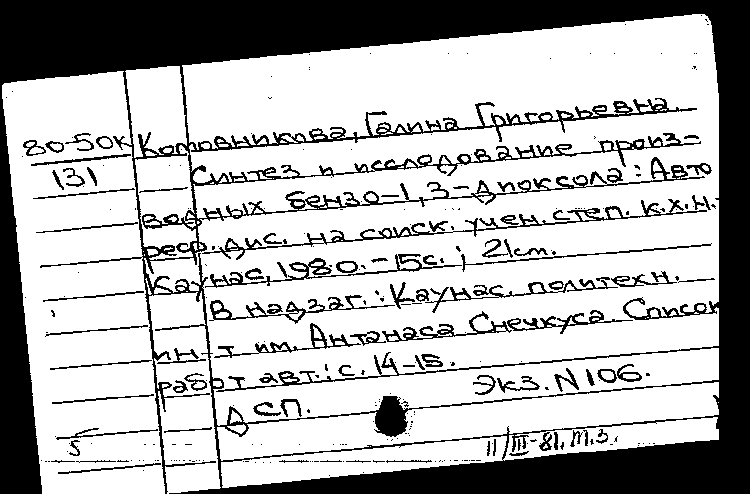 80-50к Котовникова, Галина Григорьевна.
131 Синтез и исследование произ-
водных бензо-1,3-диоксола: Авто
реф. дис. на соиск. учен. степ. к.х.н.
Каунас, 1980. - 15с.; 21см.
В надзаг.: Каунас. политехн.
ин-т им. Антанаса Снечкуса. Список
работ авт.: с. 14-15.
ДСП. Экз. N 106.
5
11/III-81. т.з.